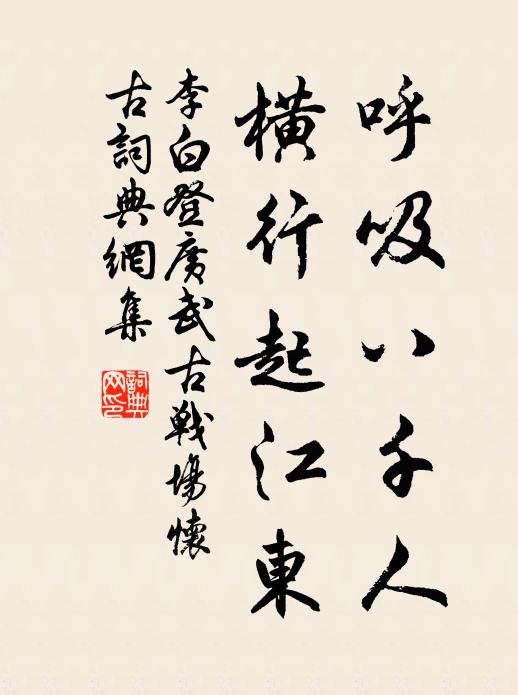 呼吸八千人
橫行起江東
李白登廣武古戰場懷
古詞典網集
詞典網印